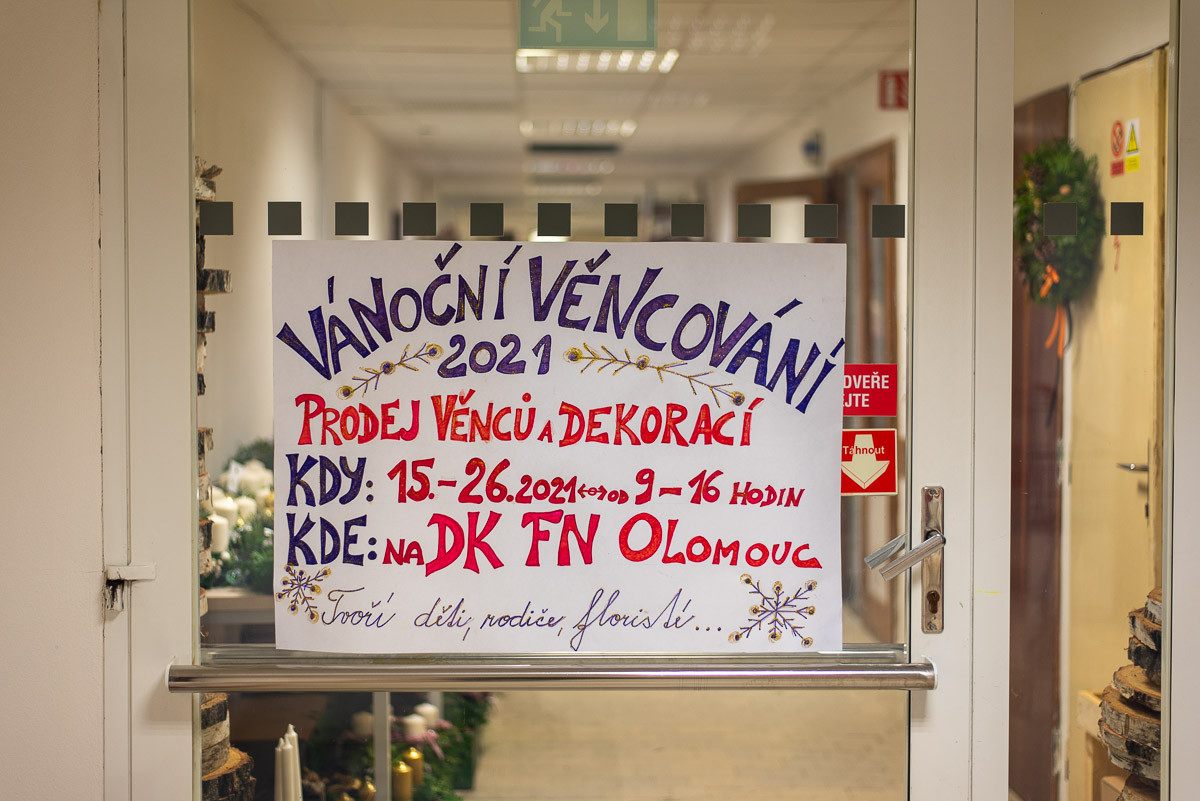 VÁNOČNÍ VĚNCOVÁNÍ
2021
PRODEJ VĚNCŮ A DEKORACÍ
KDY: 15.-26.2021↔OD 9-16 HODIN
KDE: NA DK FN OLOMOUC
Tvoří děti, rodiče, floristé...
DVEŘE
Táhnout